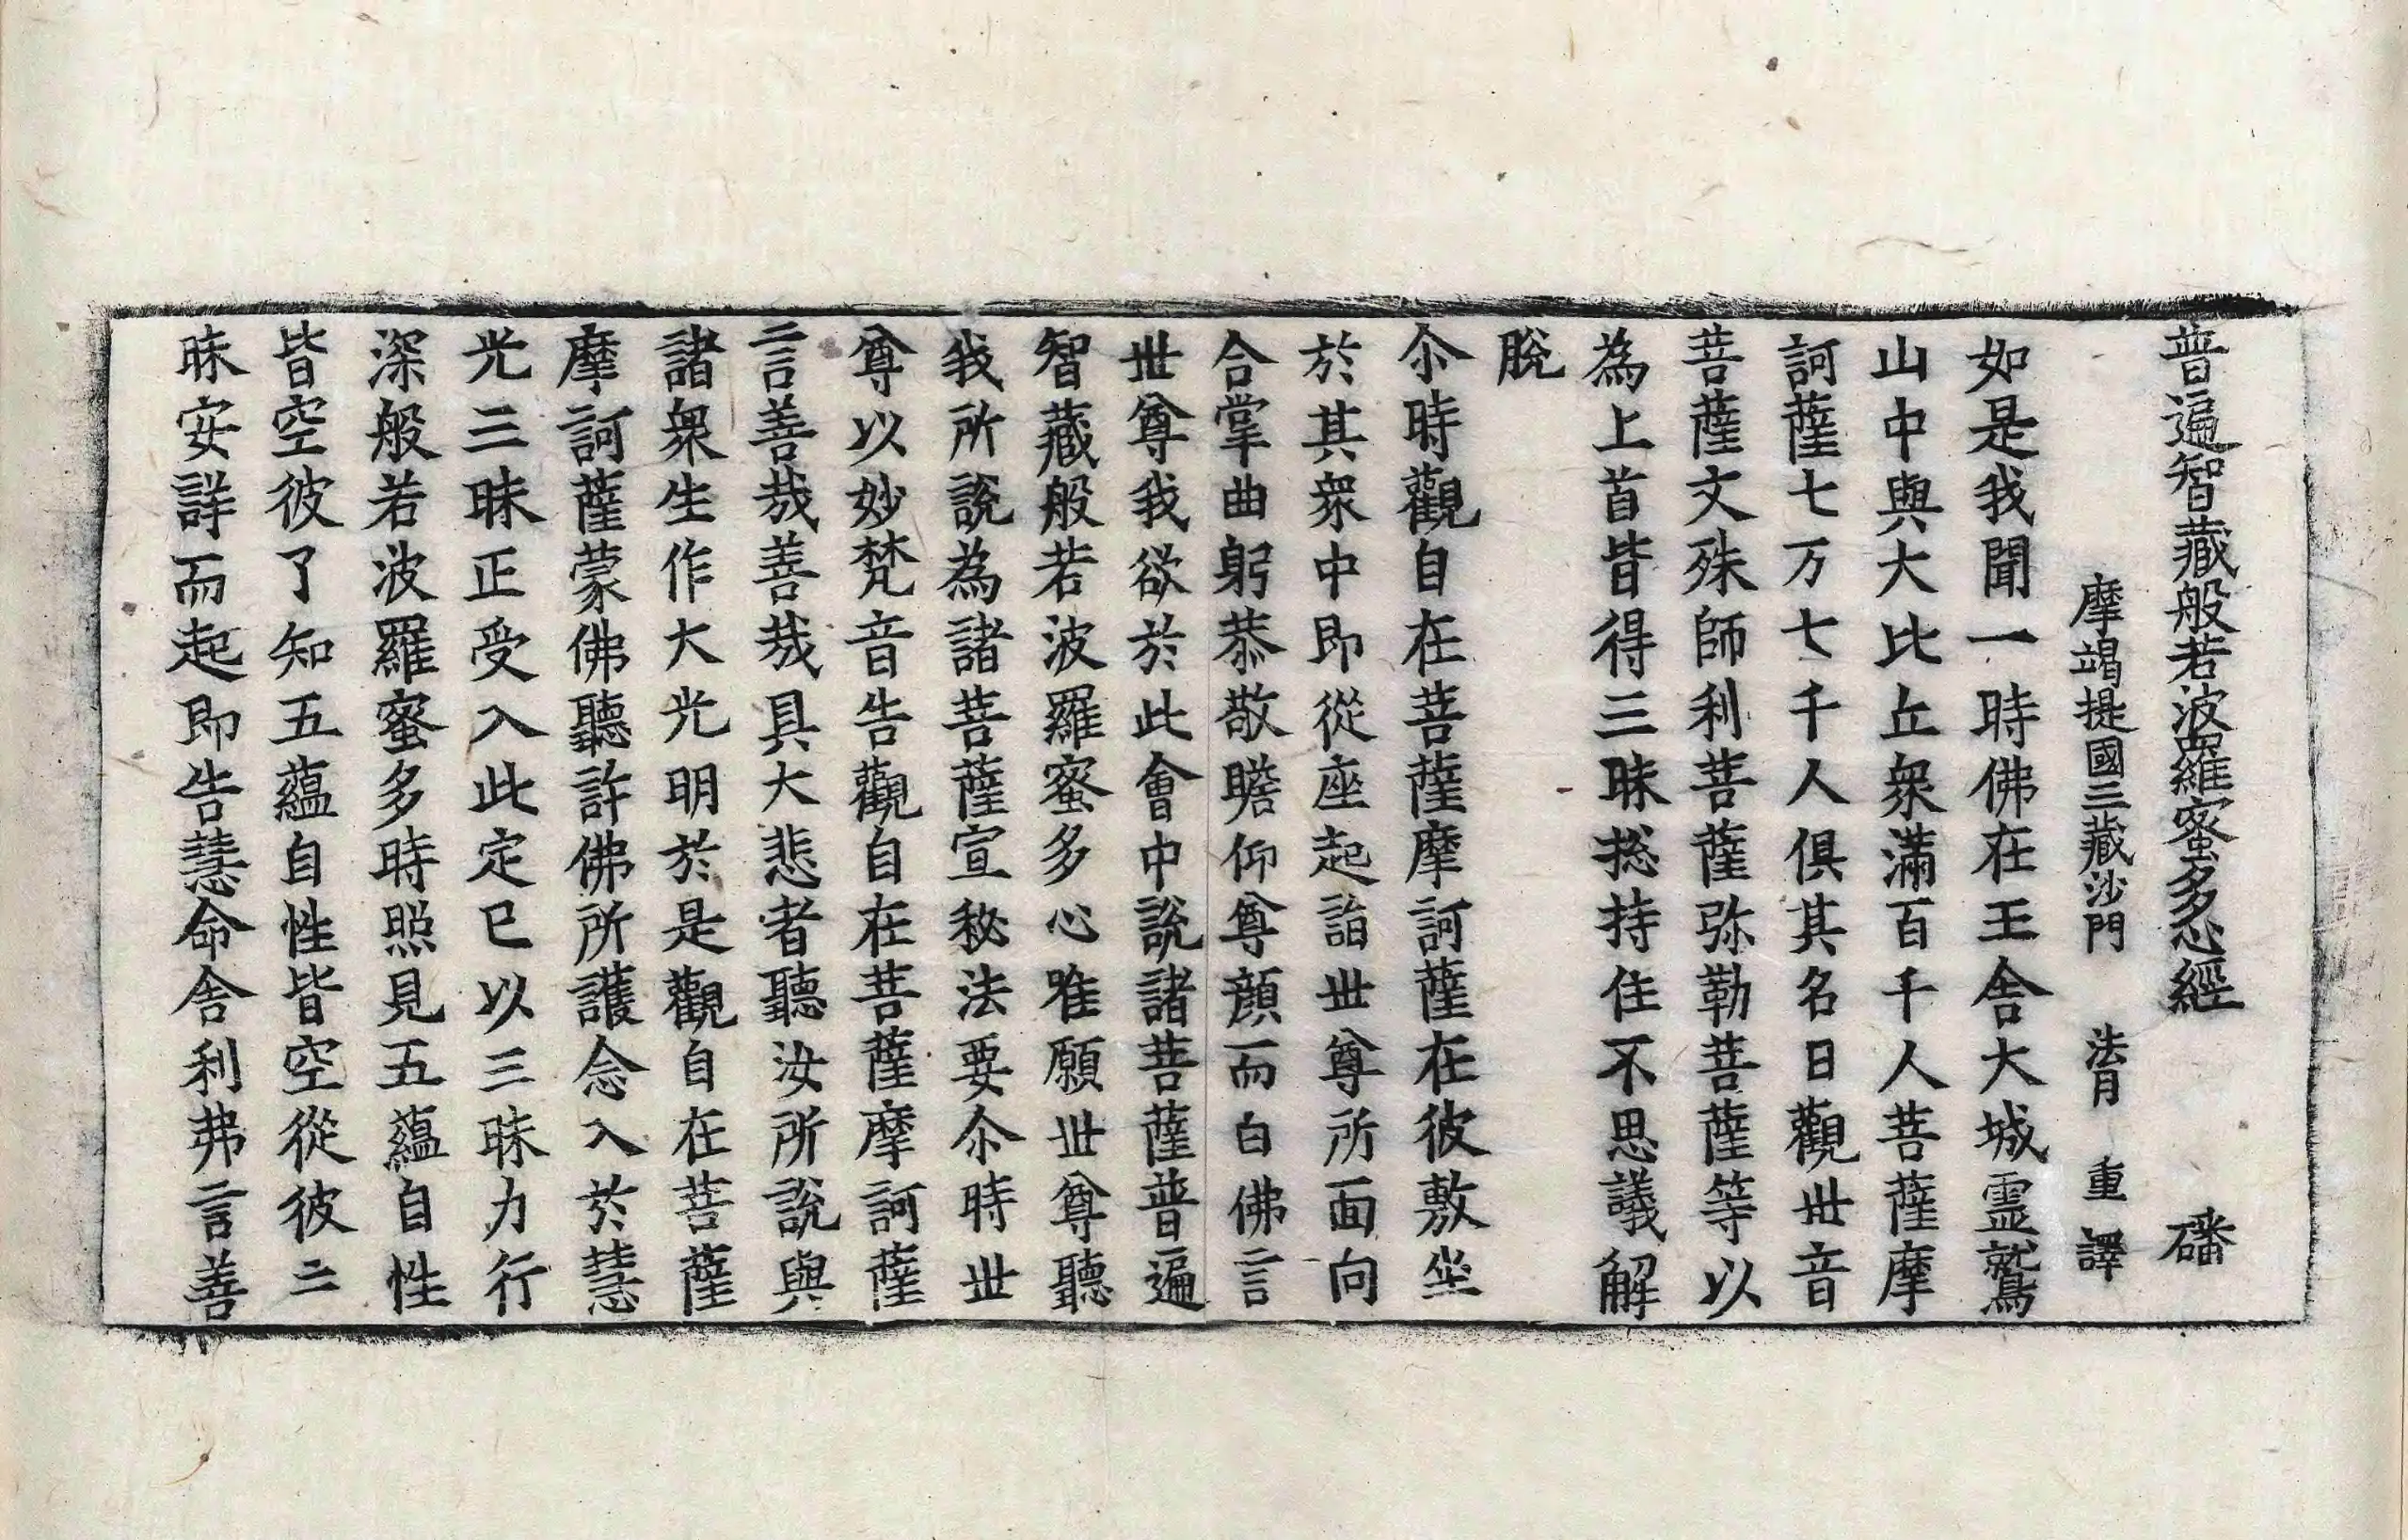 普遍智藏般若波羅蜜多心經 磻
摩竭提國三藏沙門 法月 重譯
如是我聞一時佛在王舍大城霊鷲
山中與大比丘衆滿百千人菩薩摩
訶薩七万七千人俱其名曰觀世音
菩薩文殊師利菩薩弥勒菩薩等以
為上首皆得三昧捴持住不思議解
脫
尒時觀自在菩薩摩訶薩在彼敷坐
於其衆中即從座起詣世尊所面向
合掌曲躬恭敬瞻仰尊顔而白佛言
世尊我欲於此會中說諸菩薩普遍
智藏般若波羅蜜多心唯願世尊聽
我所說為諸菩薩宣秘法要尒時世
尊以妙梵音告觀自在菩薩摩訶薩
言善哉善哉具大悲者聽汝所說與
諸衆生作大光明於是觀自在菩薩
摩訶薩蒙佛聽許佛所護念入於慧
光三昧正受入此定已以三昧力行
深般若波羅蜜多時照見五蘊自性
皆空彼了知五蘊自性皆空從彼三
昧安詳而起即告慧命舍利弗言善